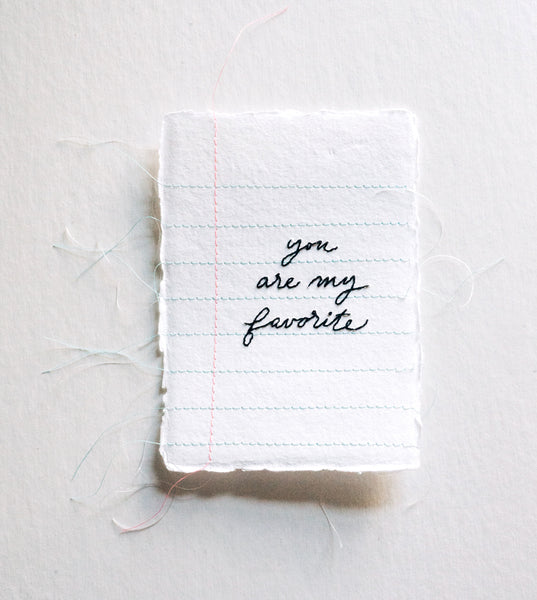 you
are my
favorite